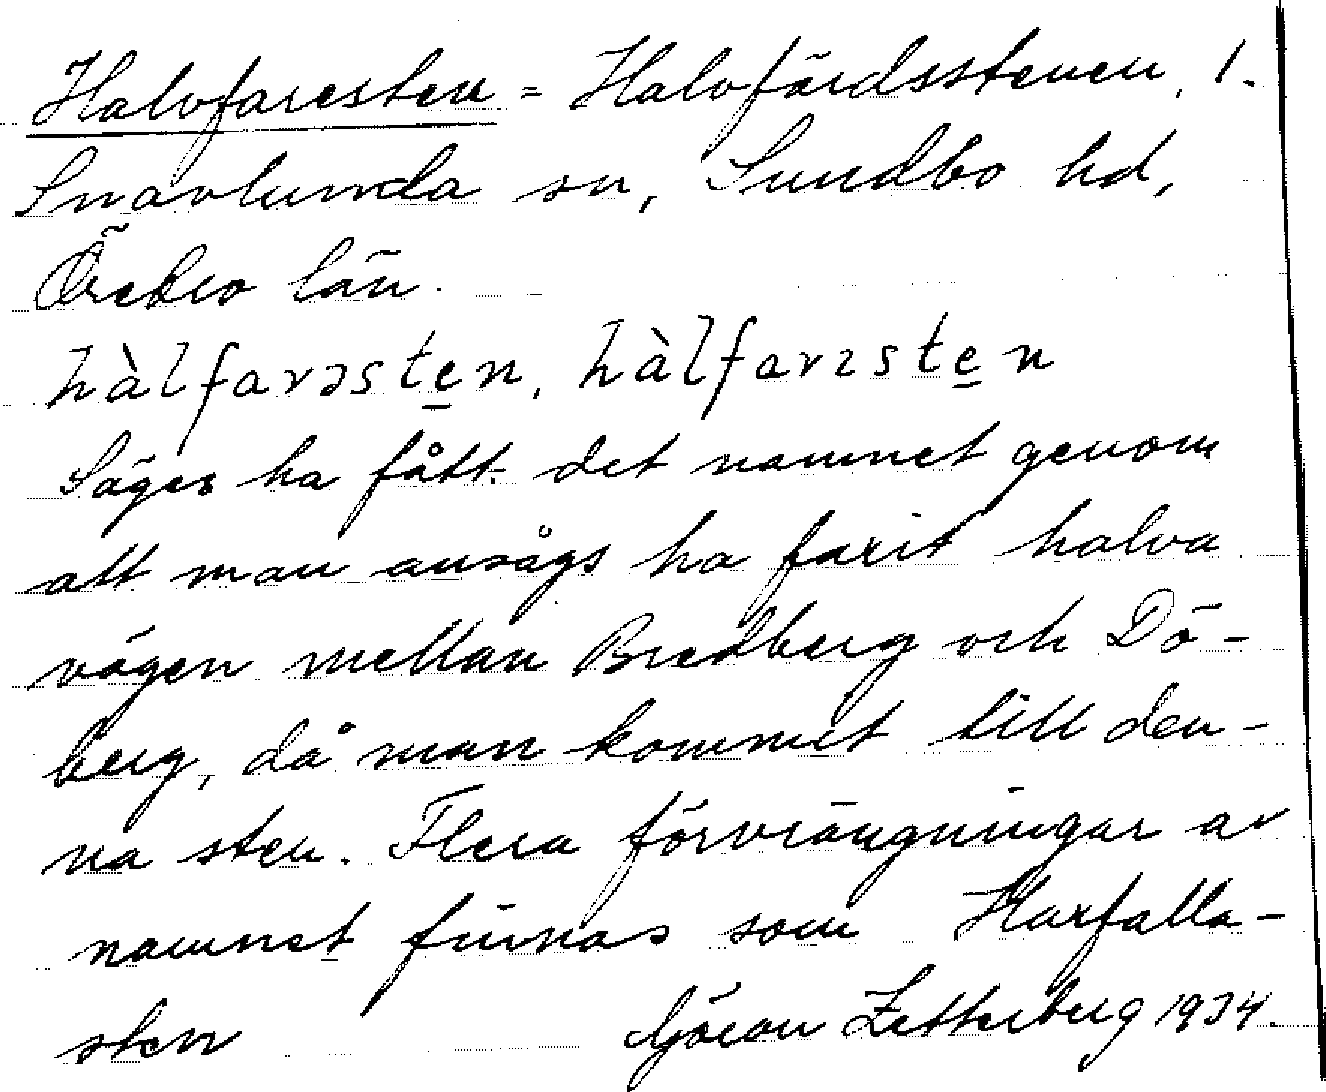 Halvfaresten = Halvfärdsstenen, 1.
Snavlunda sn, Sundbo hd,
Örebro län.
hàlfarəsten, hàlfarɪsten
Säges ha fått det namnet genom
att man ansågs ha farit halva
vägen mellan Bredberg och Dö-
berg, då man kommit till den-
na sten. Flera förvrängningar av
namnet finnas som Harfalla-
sten Göran Zetterberg 1934.